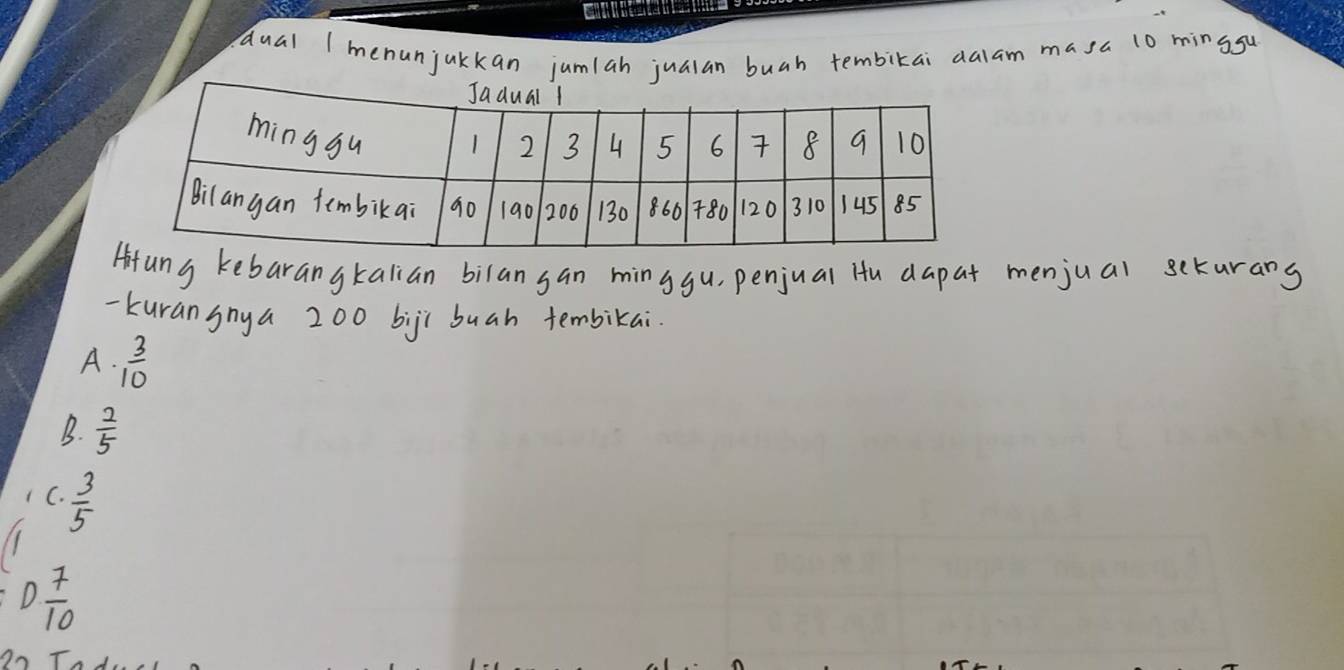 dual 1 menunjukkan jumlah jualan buah tembikai dalam masa 10 minggu
Jadual 1
minggu 1 2 3 4 5 6 7 8 9 10
Bilangan tembikai 90 190 200 130 860 780 120 310 145 85
Hitung kebarangkalian bilangan minggu, penjual itu dapat menjual sekurang
-kurangnya 200 biji buah tembikai.
A. 3/10
B. 2/5
C. 3/5
D. 7/10